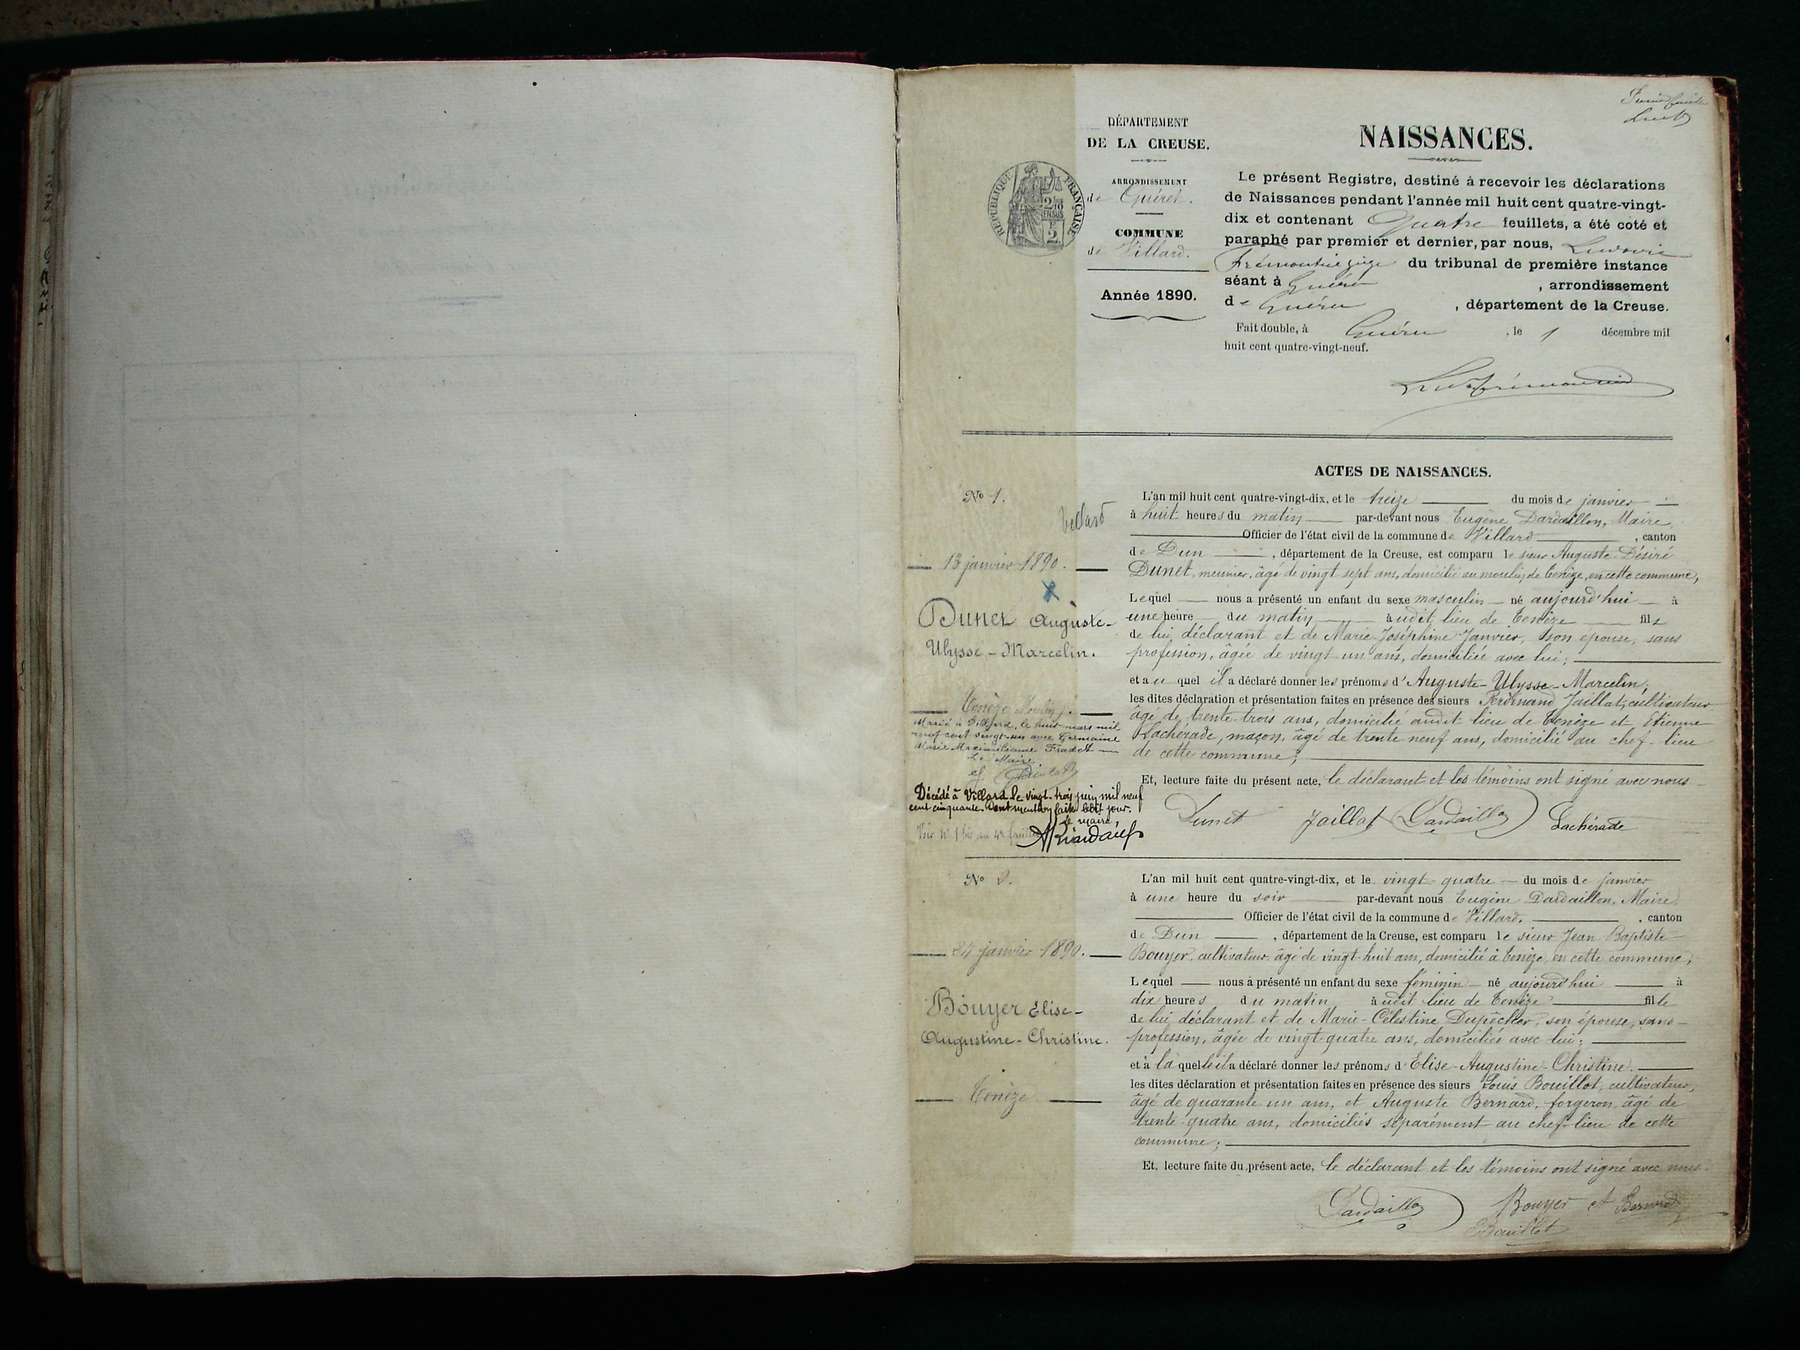 DÉPARTEMENT
DE LA CREUSE.
ARRONDISSEMENT
de Guéret.
COMMUNE
de Villard.
Année 1890.
RÉPUBLIQUE FRANÇAISE
NAISSANCES.
Le présent Registre, destiné à recevoir les déclarations
de Naissances pendant l'année mil huit cent quatre-vingt-
dix et contenant Quatre feuillets, a été coté et
paraphé par premier et dernier, par nous, Ludovic
du tribunal de première instance
séant à Guéret, arrondissement
de Guéret, département de la Creuse.
Fait double, à Guéret, le 1 décembre mil
huit cent quatre-vingt-neuf.
ACTES DE NAISSANCES.
No 1.
Villard
13 janvier 1890.
Dunet Auguste-
Ulysse-Marcelin.
Cenèze Moulin
Marié à Villard, le huit mars mil
neuf cent vingt-un avec Germaine
Marie Maximilienne Fradet
Le Maire
Décédé à Villard le vingt-trois juin mil neuf
cent cinquante. Dont mention faite ledit jour.
Le maire
L'an mil huit cent quatre-vingt-dix, et le treize du mois de janvier
à huit heures du matin par-devant nous Eugène Dardaillon, Maire
Officier de l'état civil de la commune de Villard, canton
de Dun, département de la Creuse, est comparu le sieur Auguste-Désiré
Dunet, meunier, âgé de vingt sept ans, domicilié au moulin de Cenèze, en cette commune,
Lequel nous a présenté un enfant du sexe masculin né aujourd'hui à
une heure du matin audit lieu de Cenèze fils
de lui, déclarant et de Marie-Joséphine Janvier, son épouse, sans
profession, âgée de vingt-un ans, domiciliée avec lui;
et au quel il a déclaré donner les prénoms d'Auguste-Ulysse-Marcelin,
les dites déclaration et présentation faites en présence des sieurs Ferdinand Jaillat, cultivateur
âgé de trente-trois ans, domicilié audit lieu de Cenèze et Etienne
Lachérade, maçon, âgé de trente neuf ans, domicilié au chef-lieu
de cette commune;
Et, lecture faite du présent acte, le déclarant et les témoins ont signé avec nous
Dunet Jaillat Dardaillon Lachérade
No 2.
24 janvier 1890.
Bouyer Elise-
Augustine-Christine.
Cenèze
L'an mil huit cent quatre-vingt-dix, et le vingt-quatre du mois de janvier
à une heure du soir par-devant nous Eugène Dardaillon, Maire
Officier de l'état civil de la commune de Villard, canton
de Dun, département de la Creuse, est comparu le sieur Jean-Baptiste
Bouyer, cultivateur, âgé de vingt-huit ans, domicilié à Cenèze, en cette commune,
Lequel nous a présenté un enfant du sexe féminin né aujourd'hui à
dix heures du matin audit lieu de Cenèze fille
de lui, déclarant et de Marie-Célestine Dupêcher, son épouse, sans
profession, âgée de vingt-quatre ans, domiciliée avec lui;
et à laquelle il a déclaré donner les prénoms d'Elise-Augustine-Christine.
les dites déclaration et présentation faites en présence des sieurs Louis Bouillot, cultivateur,
âgé de quarante un ans, et Auguste Bernard, forgeron, âgé de
trente-quatre ans, domiciliés séparément au chef-lieu de cette
commune;
Et, lecture faite du présent acte, le déclarant et les témoins ont signé avec nous.
Dardaillon Bouyer At Bernard
Bouillot